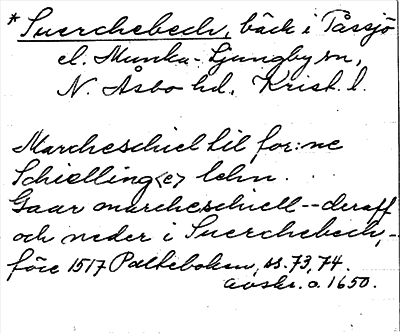 * Suerchebech, bäck i Tåssjö
el. Munka-Ljungby sn,
N. Åsbo hd. Krist. l.
Marcheschiel til for:ne
Schielling<e> lehn.
Gaar marcheschiell -- deraff
och neder i Suerchebech, -
före 1517 Palteboken, ss. 73, 74.
avskr. o. 1650.